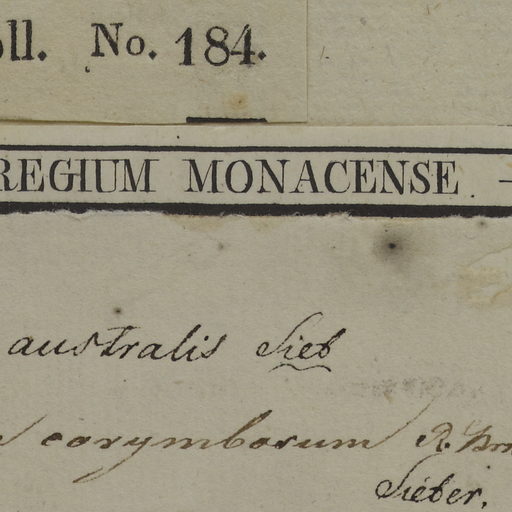 oll. No. 184.
REGIUM MONACENSE –
australis Sieb
corymbosum R. Br
Sieber.